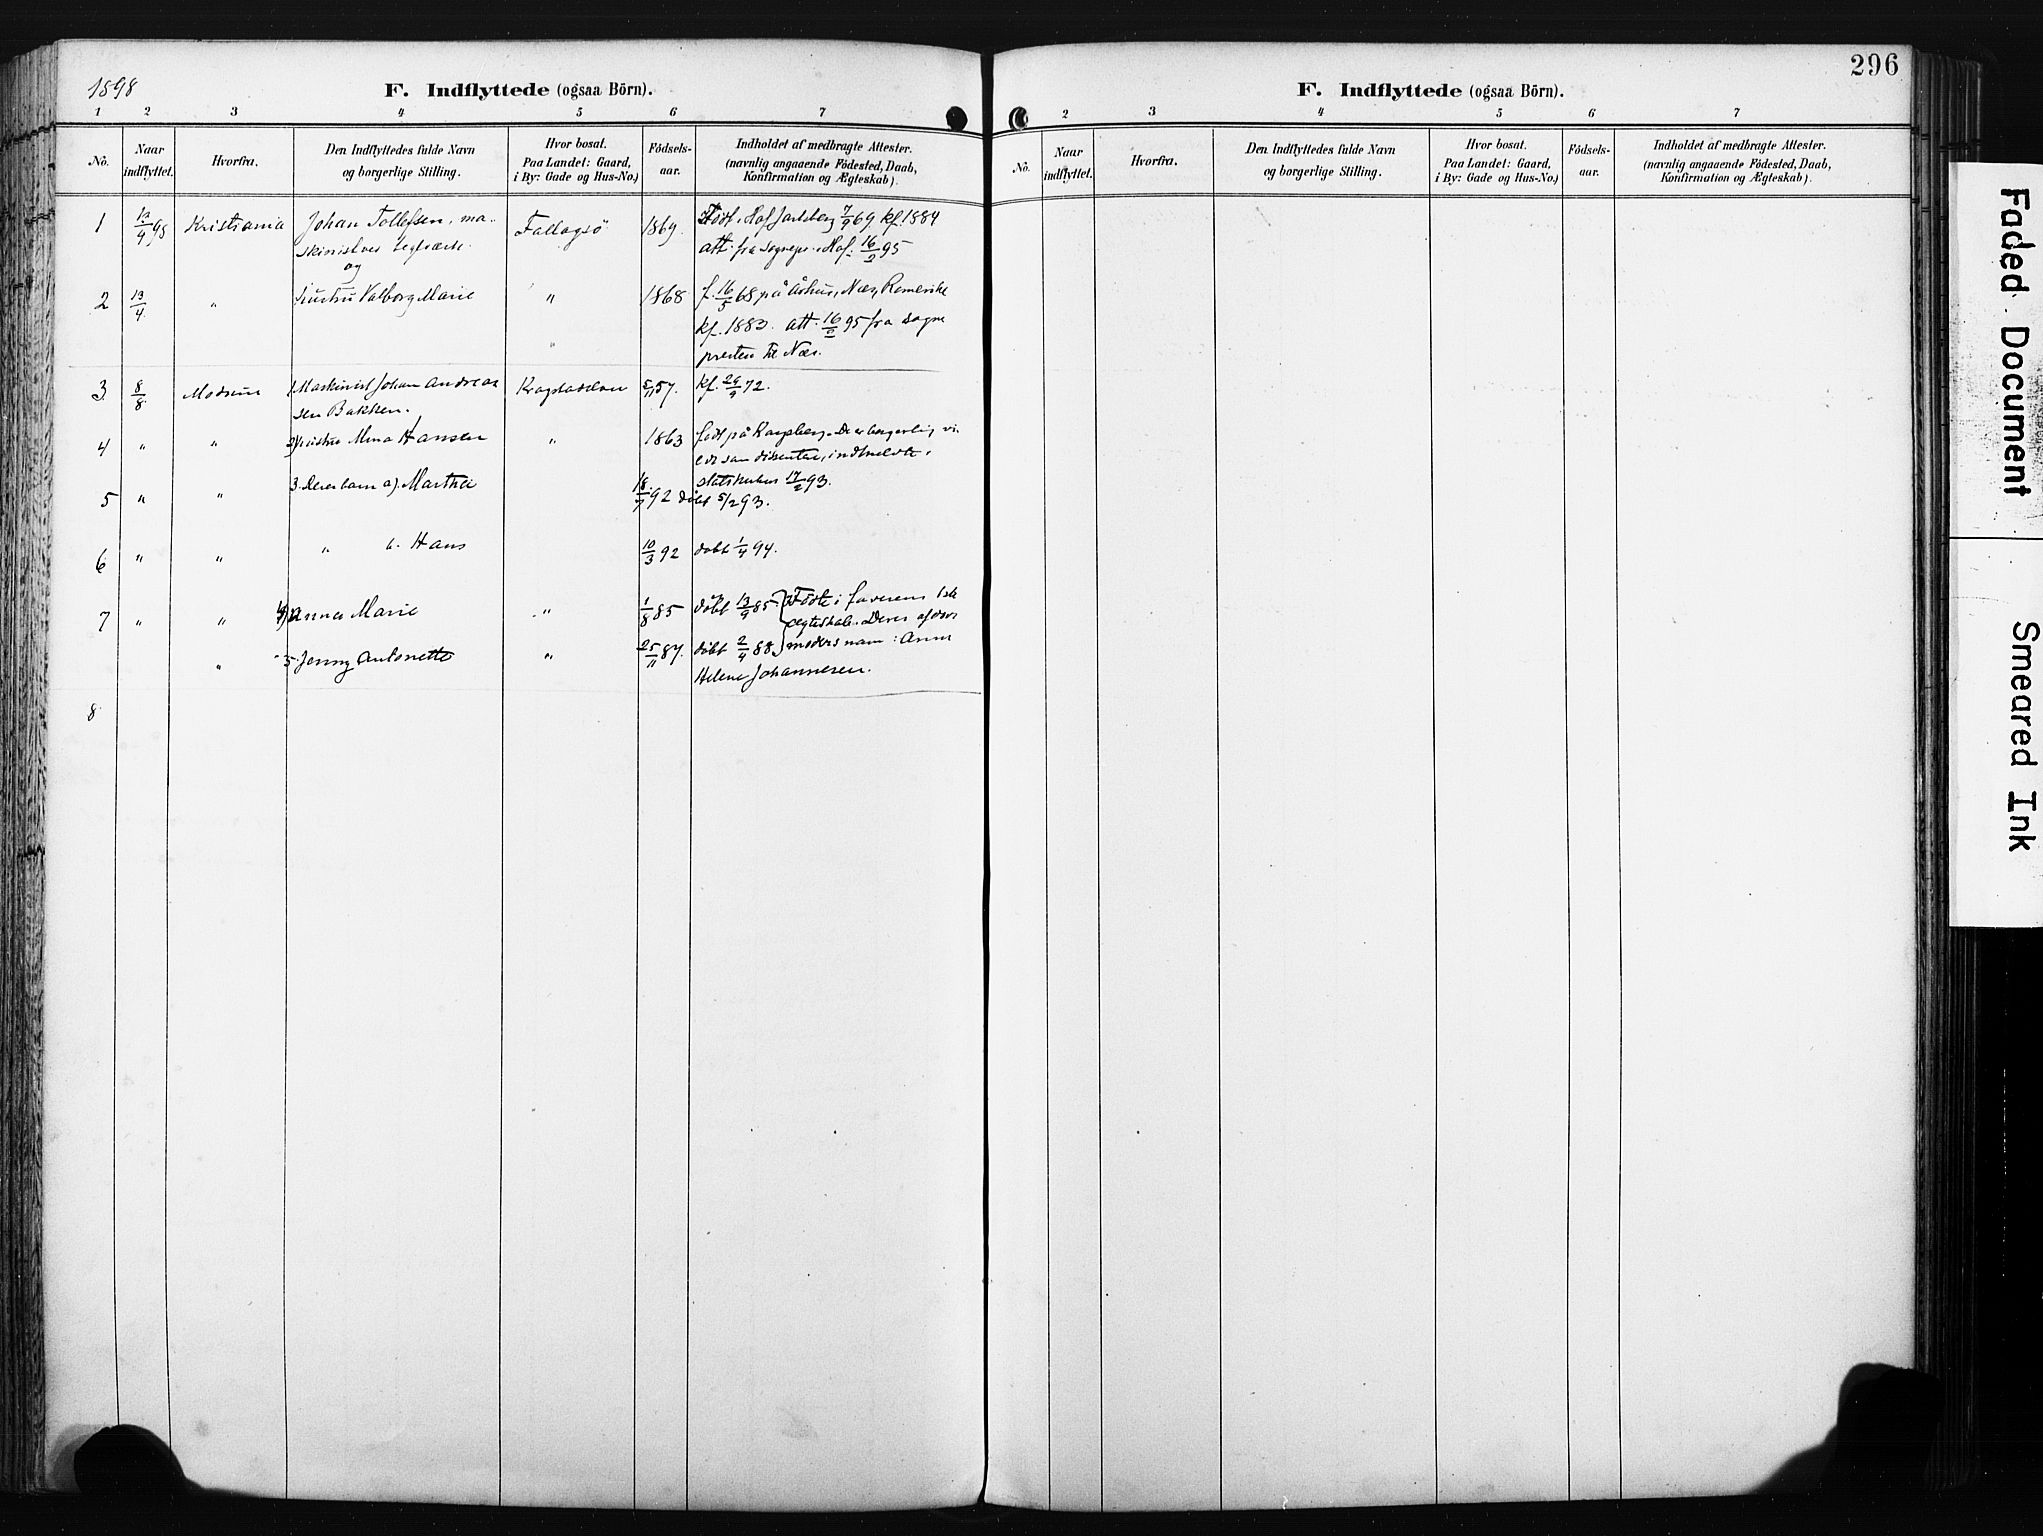 1898
F. Indflyttede (ogsaa Börn).
1 2 3 4 5 6 7
No. Naar indflyttet. Hvorfra. Den Indflyttedes fulde Navn og borgerlige Stilling. Hvor bosat. Paa Landet: Gaard, i By: Gade og Hus-No.) Födsels-aar. Indholdet af medbragte Attester. (navnlig angaaende Födested, Daab, Konfirmation og Ægteskab).
1 Kristiania Johan Tollefsen, ma- 1869 Født i Hof Jarlsberg 7/9 69 kf. 1884
skinist ved teglværk att. fra sognepr. i Hof. 16/2 95
og
2 13/4 " hustru Valborg Marie " 1868 f. 16/5 68 på Næs, Romerike
" kf. 1883. att. 16/2 95 fra sogne
presten til Næs.
3 8/8 Modum 1 Maskinist Johan Andreas 5/11 57. kf. 72.
sen Bakken.
4 " " 2) hustru Hansen " 1863 født på Kongsberg. De er borgerlig vi-
ede som dissentere, indmeldte i
statskirken 17/2 93.
5 " " 3. Deres barn a). Martha 18/7 92 døbt 5/2 93.
6 " " " b. Hans 10/3 92 døbt 1/4 94.
7 " " 4) Anna Marie " 1/8 85 døbt 13/9 85 Fødte i faderens 1ste
ægteskab. Deres afdøde
" 5. Jenny Antonette " 25/11 87. døbt 2/4 88 moders navn: Anne
Helene Johannesen.
8
296
F. Indflyttede (ogsaa Börn).
2 3 4 5 6 7
No. Naar indflyttet. Hvorfra. Den Indflyttedes fulde Navn og borgerlige Stilling. Hvor bosat. Paa Landet: Gaard, i By: Gade og Hus-No.) Födsels-aar. Indholdet af medbragte Attester. (navnlig angaaende Födested, Daab, Konfirmation og Ægteskab).
Faded Document
Smeared Ink